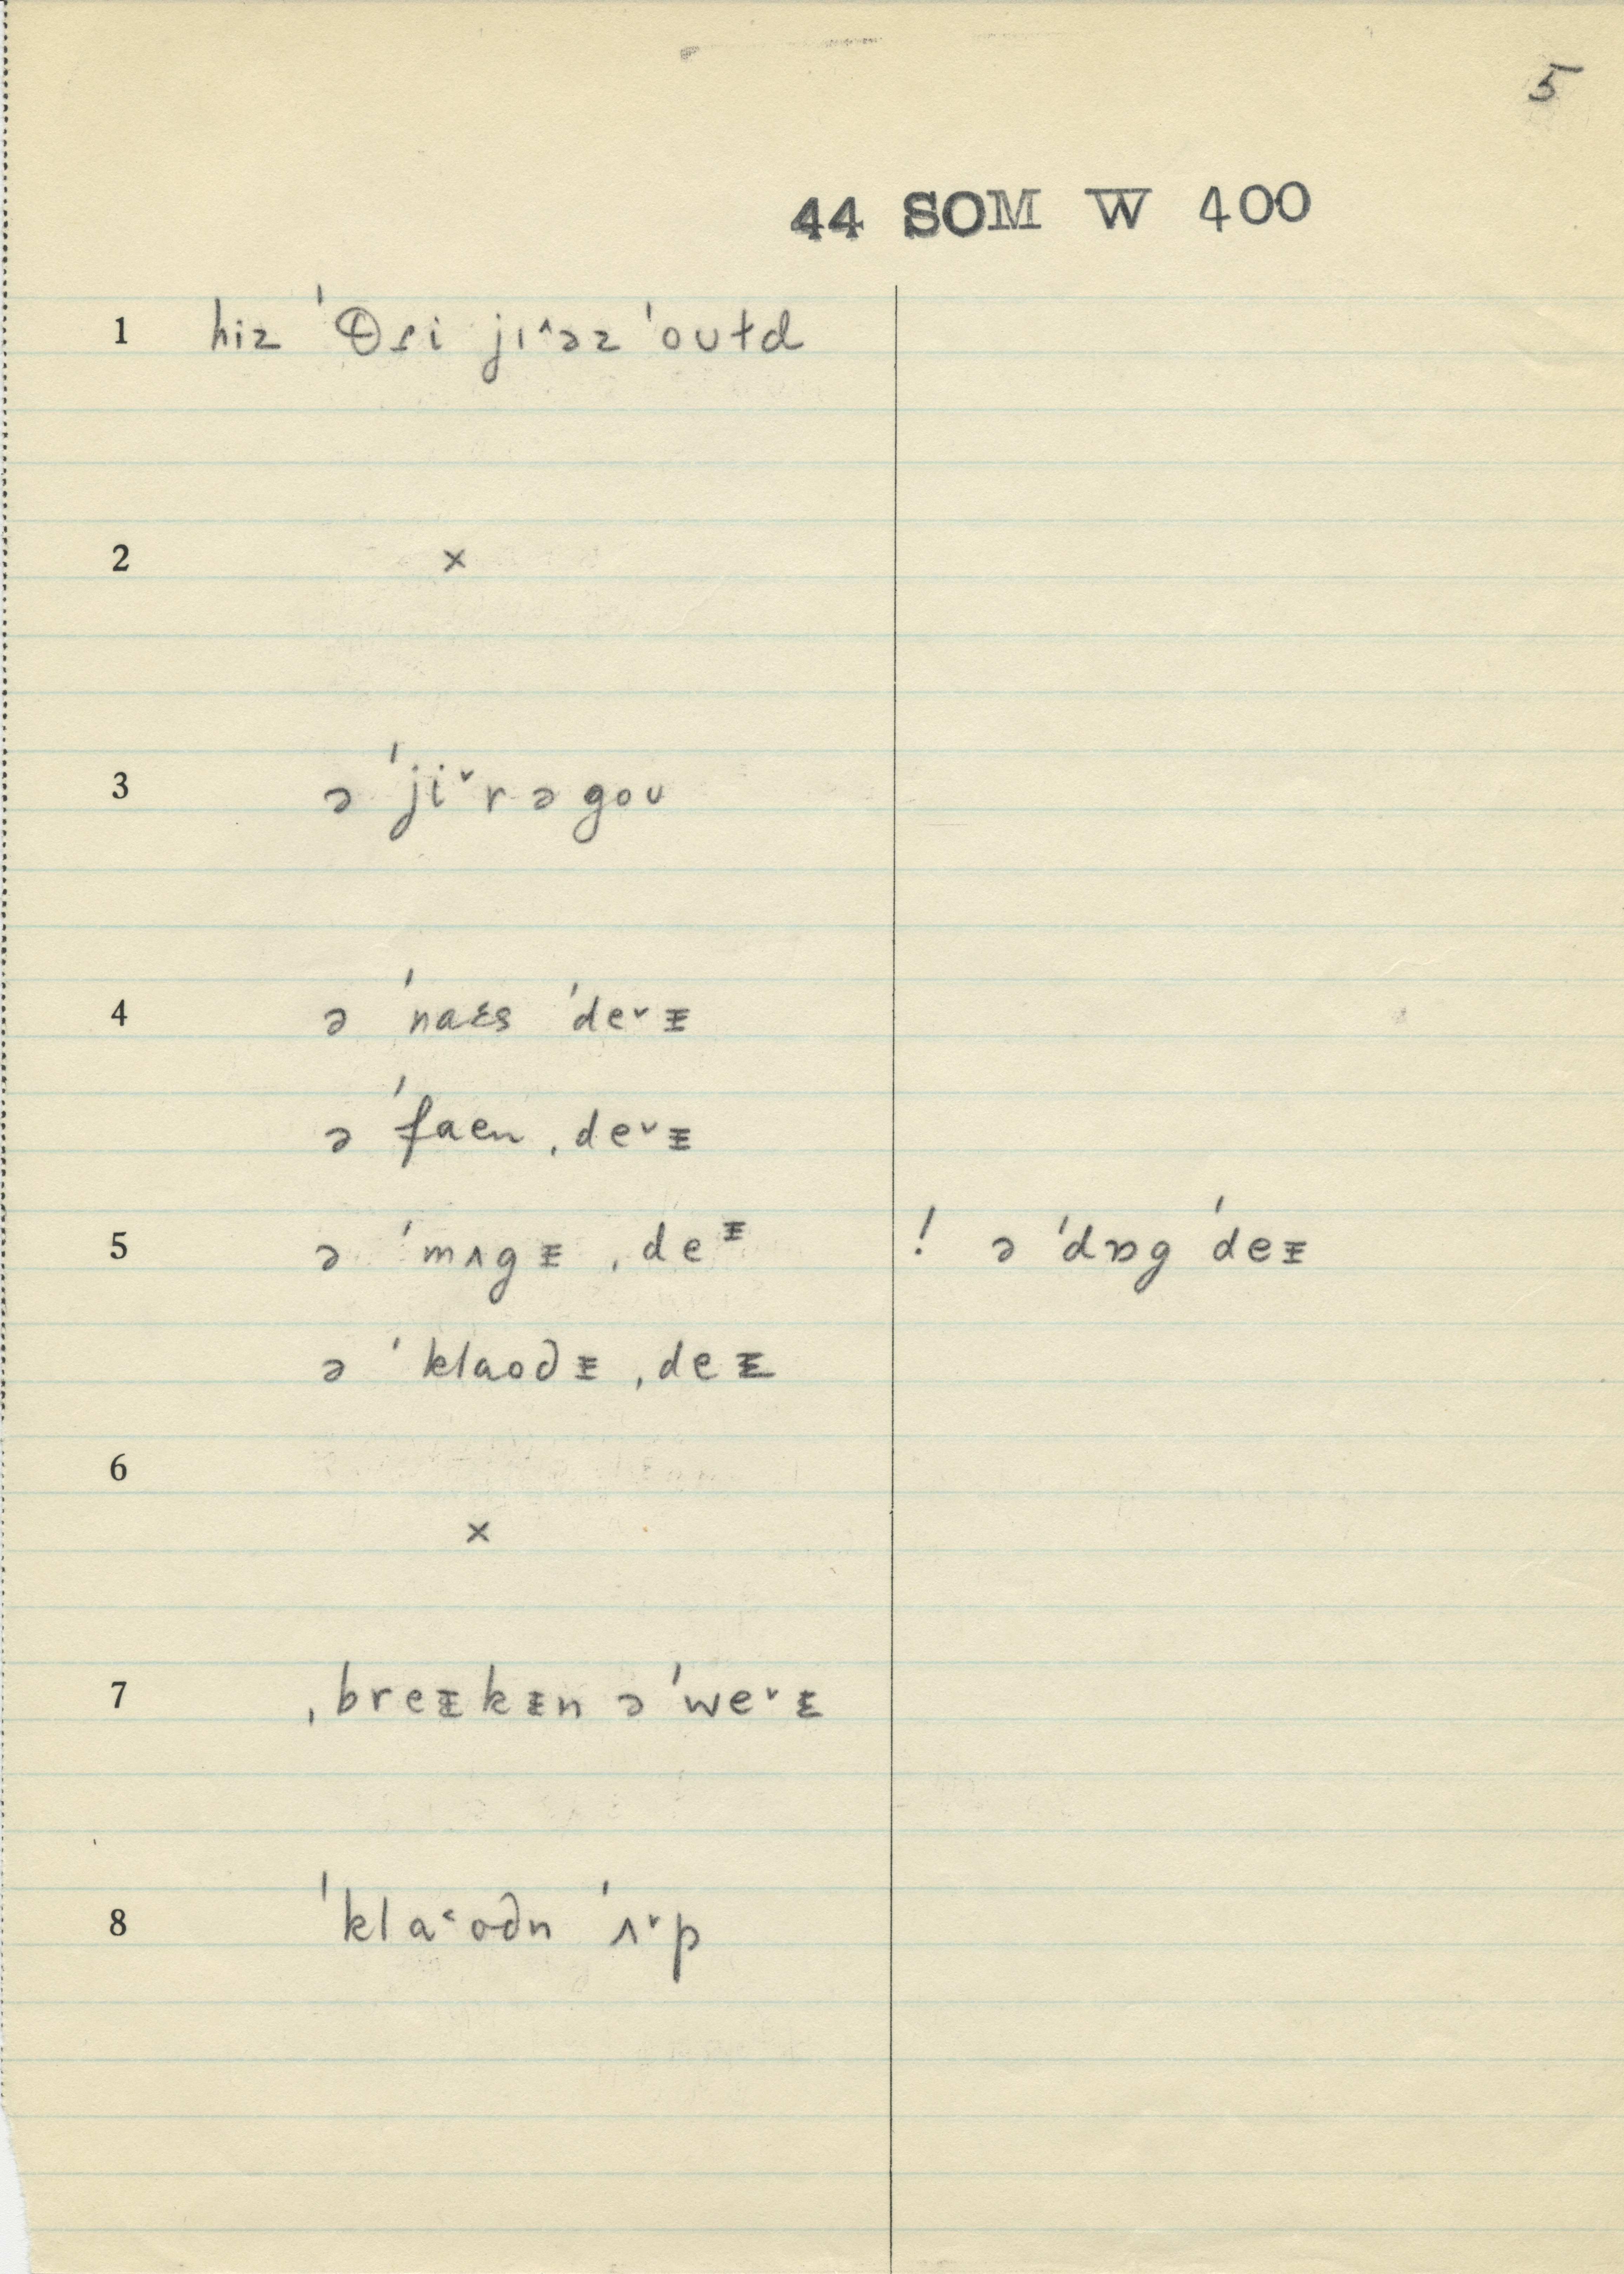 5
44 SOM W 400
1 hiz ˈθɾi jɪ^əz ˈoʊɫd
2 ×
3 ə ˈji˅rəgoʊ
4 ə ˈnaɛs ˈde˅ᵻ
ə ˈfaen ˌde˅ᵻ
5 ə ˈmʌgᵻ ˌdeᵻ ! ə ˈdɒg ˈdeᵻ
ə ˈklaodᵻ ˌdeᵻ
6
×
7 ˌbreᵻkᵻn ə ˈwe˅ᵻ
8 ˈkla˂odn ˈʌ˅p